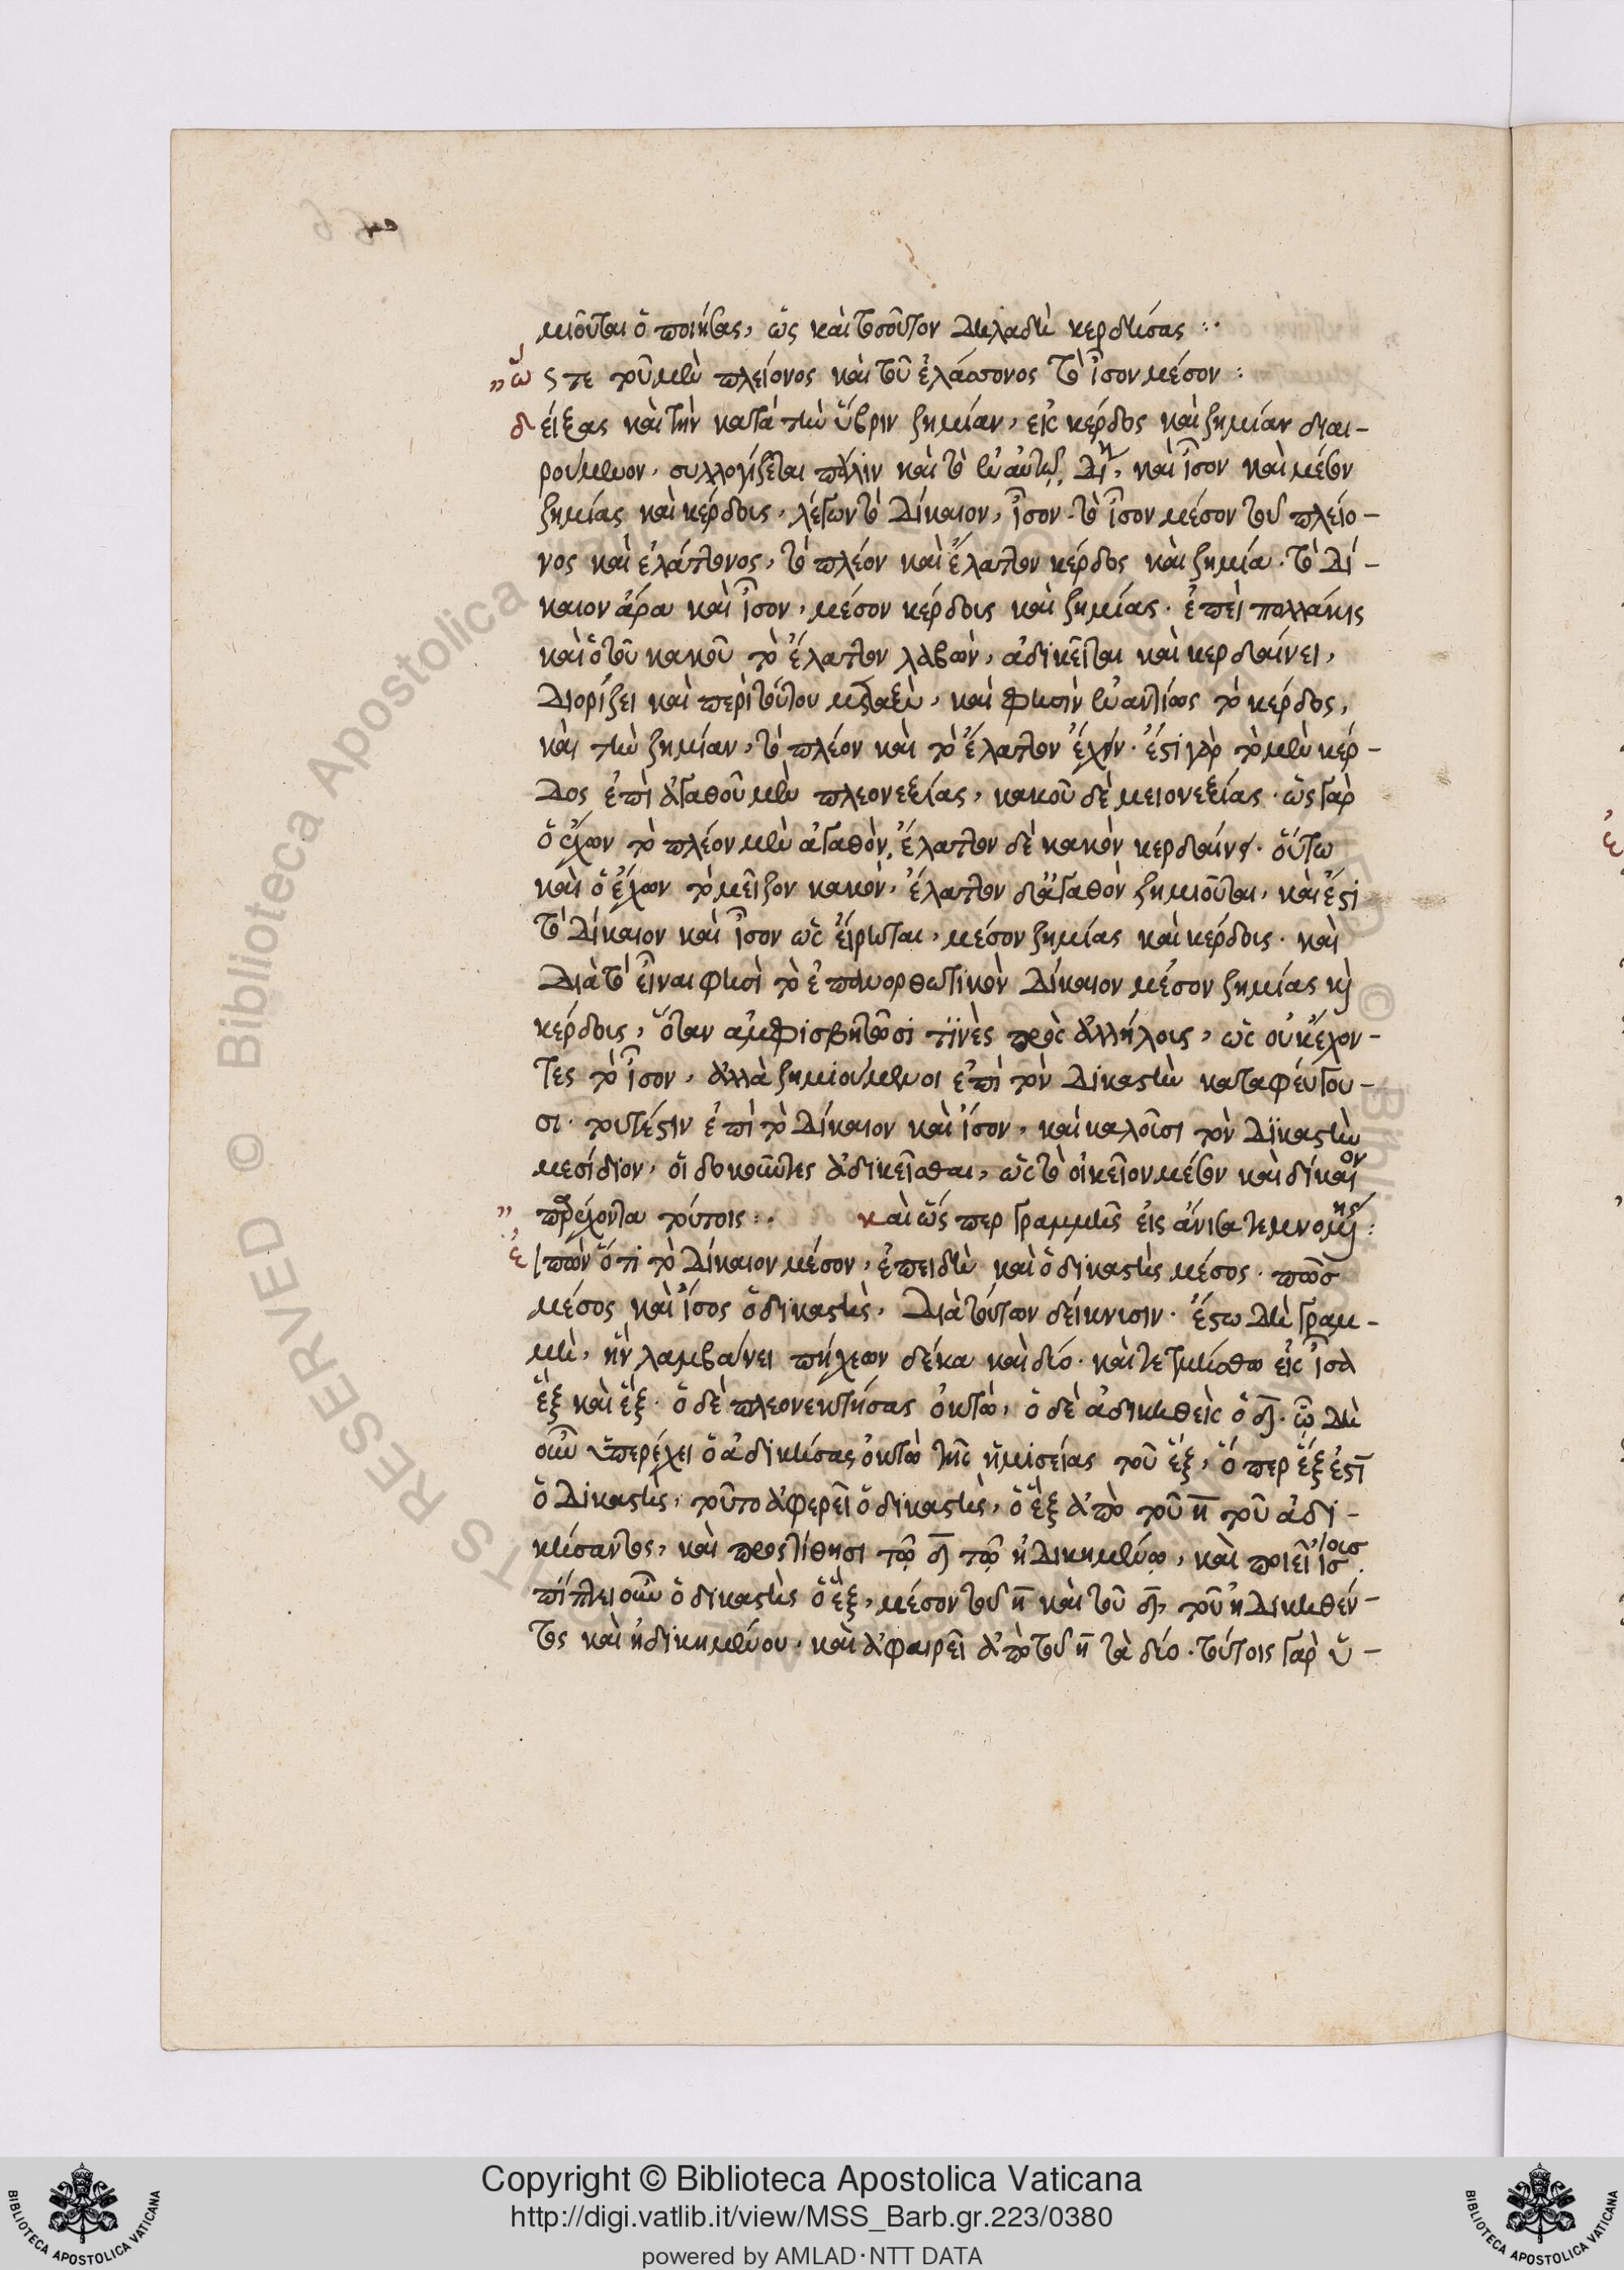 μιοῦται ὁ ποιήσας, ὡς καὶ τοσοῦτον δηλαδὴ κερδήσας :·
" ὥστε τοῦ μὲν πλείονος καὶ τοῦ ἐλάσσονος τὸ ἴσον μέσον :
δείξας καὶ τὴν κατὰ τὴν ὕβριν ζημίαν, εἰς κέρδος καὶ ζημίαν διαι-
ρούμενον, συλλογίζεται πάλιν καὶ τὸ ἐν αὐτῷ καὶ ἴσον καὶ μέσον
ζημίας καὶ κέρδους, λέγων τὸ δίκαιον, ἴσον. τὸ ἴσον μέσον τοῦ πλείο-
νος καὶ ἐλάττονος, τὸ πλέον καὶ ἔλαττον κέρδος καὶ ζημία. τὸ δί-
καιον ἄρα καὶ ἴσον, μέσον κέρδους καὶ ζημίας. ἐπεὶ πολλάκις
καὶ ὁ τοῦ κακοῦ τὸ ἔλαττον λαβὼν, ἀδικεῖται καὶ κερδαίνει,
διορίζει καὶ περὶ τούτου μεταξὺ, καὶ φησὶν ἐναντίως τὸ κέρδος,
καὶ τὴν ζημίαν, τὸ πλέον καὶ τὸ ἔλαττον ἔχειν. ἔστι γὰρ τὸ μὲν κέρ-
δος ἐπὶ ἀγαθοῦ μὲν πλεονεξίας, κακοῦ δὲ μειονεξίας. ὡς γὰρ
ὁ ἔχων τὸ πλέον μὲν ἀγαθὸν, ἔλαττον δὲ κακὸν κερδαίνει. οὕτω
καὶ ὁ ἔχων τὸ μεῖζον κακὸν, ἔλαττον δὲ ἀγαθὸν ζημιοῦται, καὶ ἔστι
τὸ δίκαιον καὶ ἴσον ὡς εἴρηται, μέσον ζημίας καὶ κέρδους. καὶ
διὰ τὸ εἶναι φησὶ τὸ ἐπανορθωτικὸν δίκαιον μέσον ζημίας καὶ
κέρδους, ὅταν ἀμφισβητῶσί τινὲς πρὸς ἀλλήλους, ὡς οὐκ ἔχον-
τες τὸ ἴσον, ἀλλὰ ζημιούμενοι ἐπὶ τὸν δικαστὴν καταφεύγου-
σι. τουτέστιν ἐπὶ τὸ δίκαιον καὶ ἴσον, καὶ καλοῦσι τὸν δικαστὴν
μεσίδιον, οἱ δοκοῦντες ἀδικεῖσθαι, ὡς τὸ οἰκεῖον μέσον καὶ δίκαιον
παρέχοντα τούτοις :· καὶ ὥσπερ γραμμῆς εἰς ἄνισα τεμνομένης :
εἰπὼν ὅτι τὸ δίκαιον μέσον, ἐπειδὴ καὶ ὁ δικαστὴς μέσος. πῶς
μέσος καὶ ἴσος ὁ δικαστὴς, διὰ τούτων δείκνυσιν. ἔστω δὴ γραμ-
μὴ, ἣν λαμβάνει πήχεων δέκα καὶ δύο. καὶ τετμήσθω εἰς ἴσα
ἓξ καὶ ἓξ. ὁ δὲ πλεονεκτήσας ὀκτὼ, ὁ δὲ ἀδικηθεὶς ὁ δ̄. ᾧ δὴ
οὖν ὑπερέχει ὁ ἀδικήσας ὀκτὼ τῆς ἡμισείας τοῦ ἓξ, ὅπερ ἓξ ἐστὶ
ὁ δικαστὴς, τοῦτο ἀφερεῖ ὁ δικαστὴς, ὁ ἓξ ἀπὸ τοῦ η̄ τοῦ ἀδι-
κήσαντος, καὶ προστίθησι τῷ δ̄ τῷ ἠδικημένῳ, καὶ ποιεῖ ἴσους.
πίπτει οὖν ὁ δικαστὴς ὁ ἓξ, μέσον τοῦ η̄ καὶ τοῦ δ̄, τοῦ ἠδικηθέν-
τος καὶ ἠδικημένου. καὶ ἀφαιρεῖ ἀπὸ τοῦ η̄ τὰ δύο. τούτοις γὰρ ὑ-
Copyright © Biblioteca Apostolica Vaticana
http://digi.vatlib.it/view/MSS_Barb.gr.223/0380
powered by AMLAD·NTT DATA